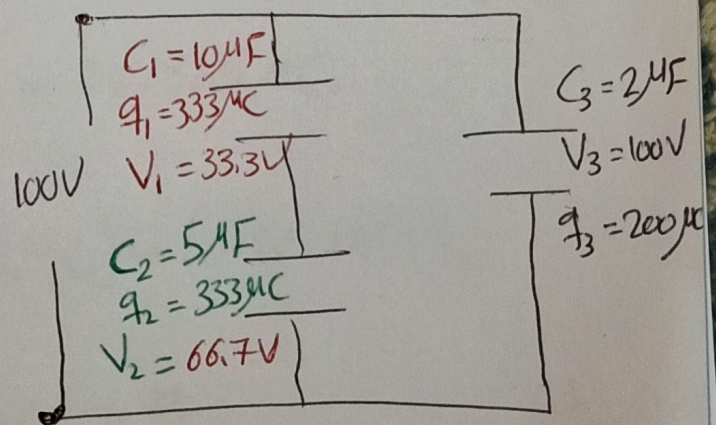 C₁ = 10μF
q₁ = 333μC
V₁ = 33.3V
100V
C₂ = 5μF
q₂ = 333μC
V₂ = 66.7V
C₃ = 2μF
V₃ = 100V
q₃ = 200μC